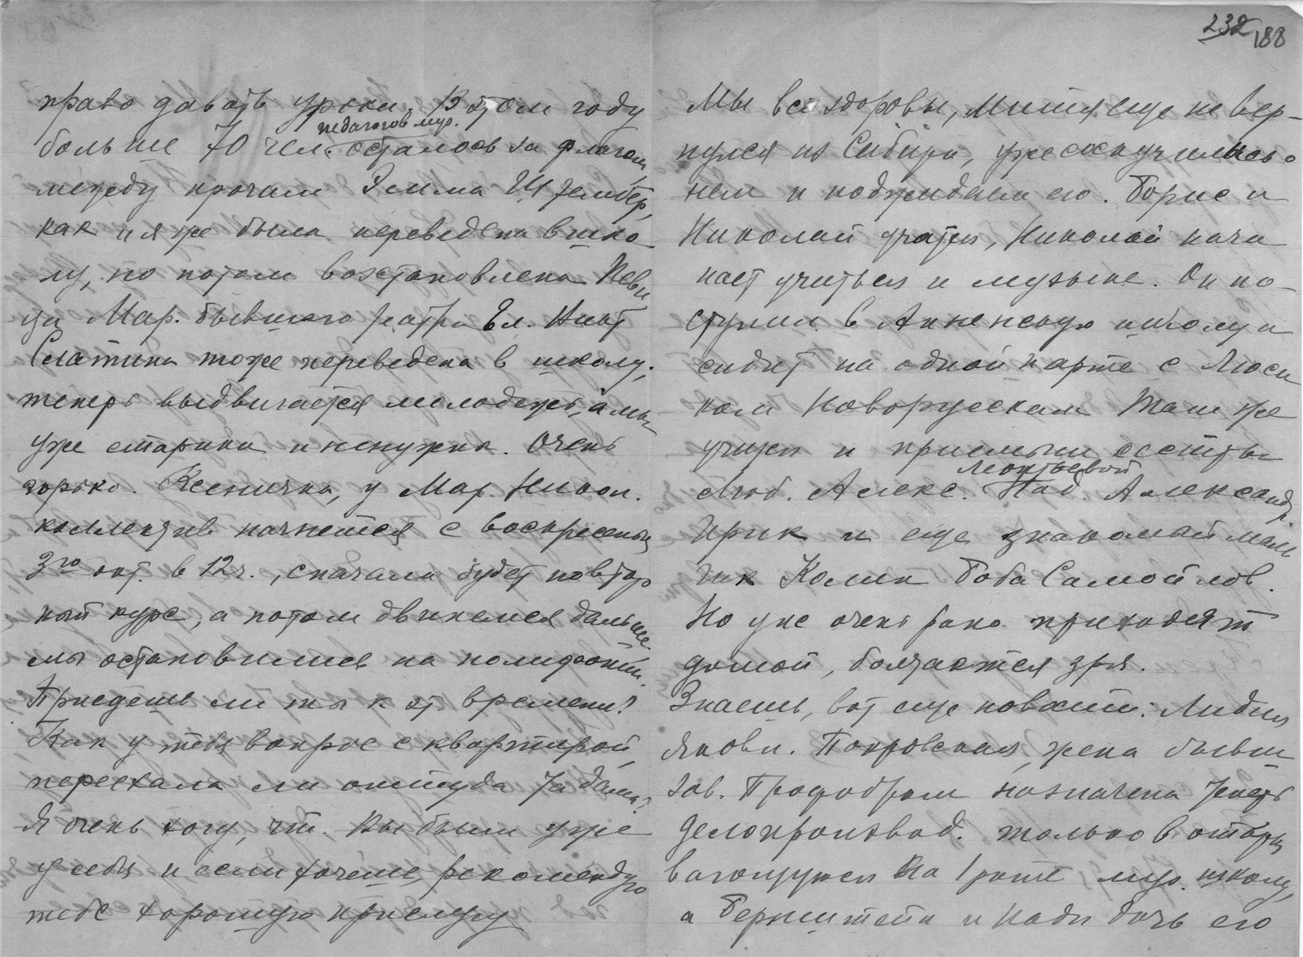 232 188
право давать уроки. В этом году
педагогов муз.
больше 70 чел. осталось за флагом,
между прочим Эмма Штембер,
как и я уже была переведена в шко-
лу, но потом возстановлена. Певи
ца Мар. бывшего театра Ел. Игнат
Слатина тоже переведена в школу.
теперь выдвигается молодежь, а мы
уже старики и ненужны. Очень
горько. Ксеничка, у Мар. Никол.
коллектив начнется с воскресенья
3го окт. в 12 ч., сначала будет повтор
ный курс, а потом двинемся дальше
мы остановились на полифонии.
Приедешь ли ты к эт. времени?
Как у тебя вопрос с квартирой,
переехала ли оттуда дама?
Я очень хочу, чт. Вы были уже
у себя и если хочешь, рекомендую
тебе хорошую прислугу
Мы все здоровы, Митя еще не вер-
нулся из Сибири, уже соскучились о
нем и поджидаем его. Борис и
Николай учатся, Николай начи
нает учиться и музыке. Он по-
ступил в Анненскую школу и
сидит на одной парте с Люси
ком Новорусским Там же
учится и приемыш сестры
Леонтьевой
Люб. Алекс. Над. Александр.
Ирик и еще знакомый маль
чик Колин Боба Самойлов.
Но уже очень рано приходят
домой, болтаются зря.
Знаешь, вот еще новости: Лидия
Яковл. Покровская, жена бывш
зав. Профобром назначена теперь
делопроизвод. только во вторую
на 1 рите муз. школу,
а Бернштейн и Надя дочь его